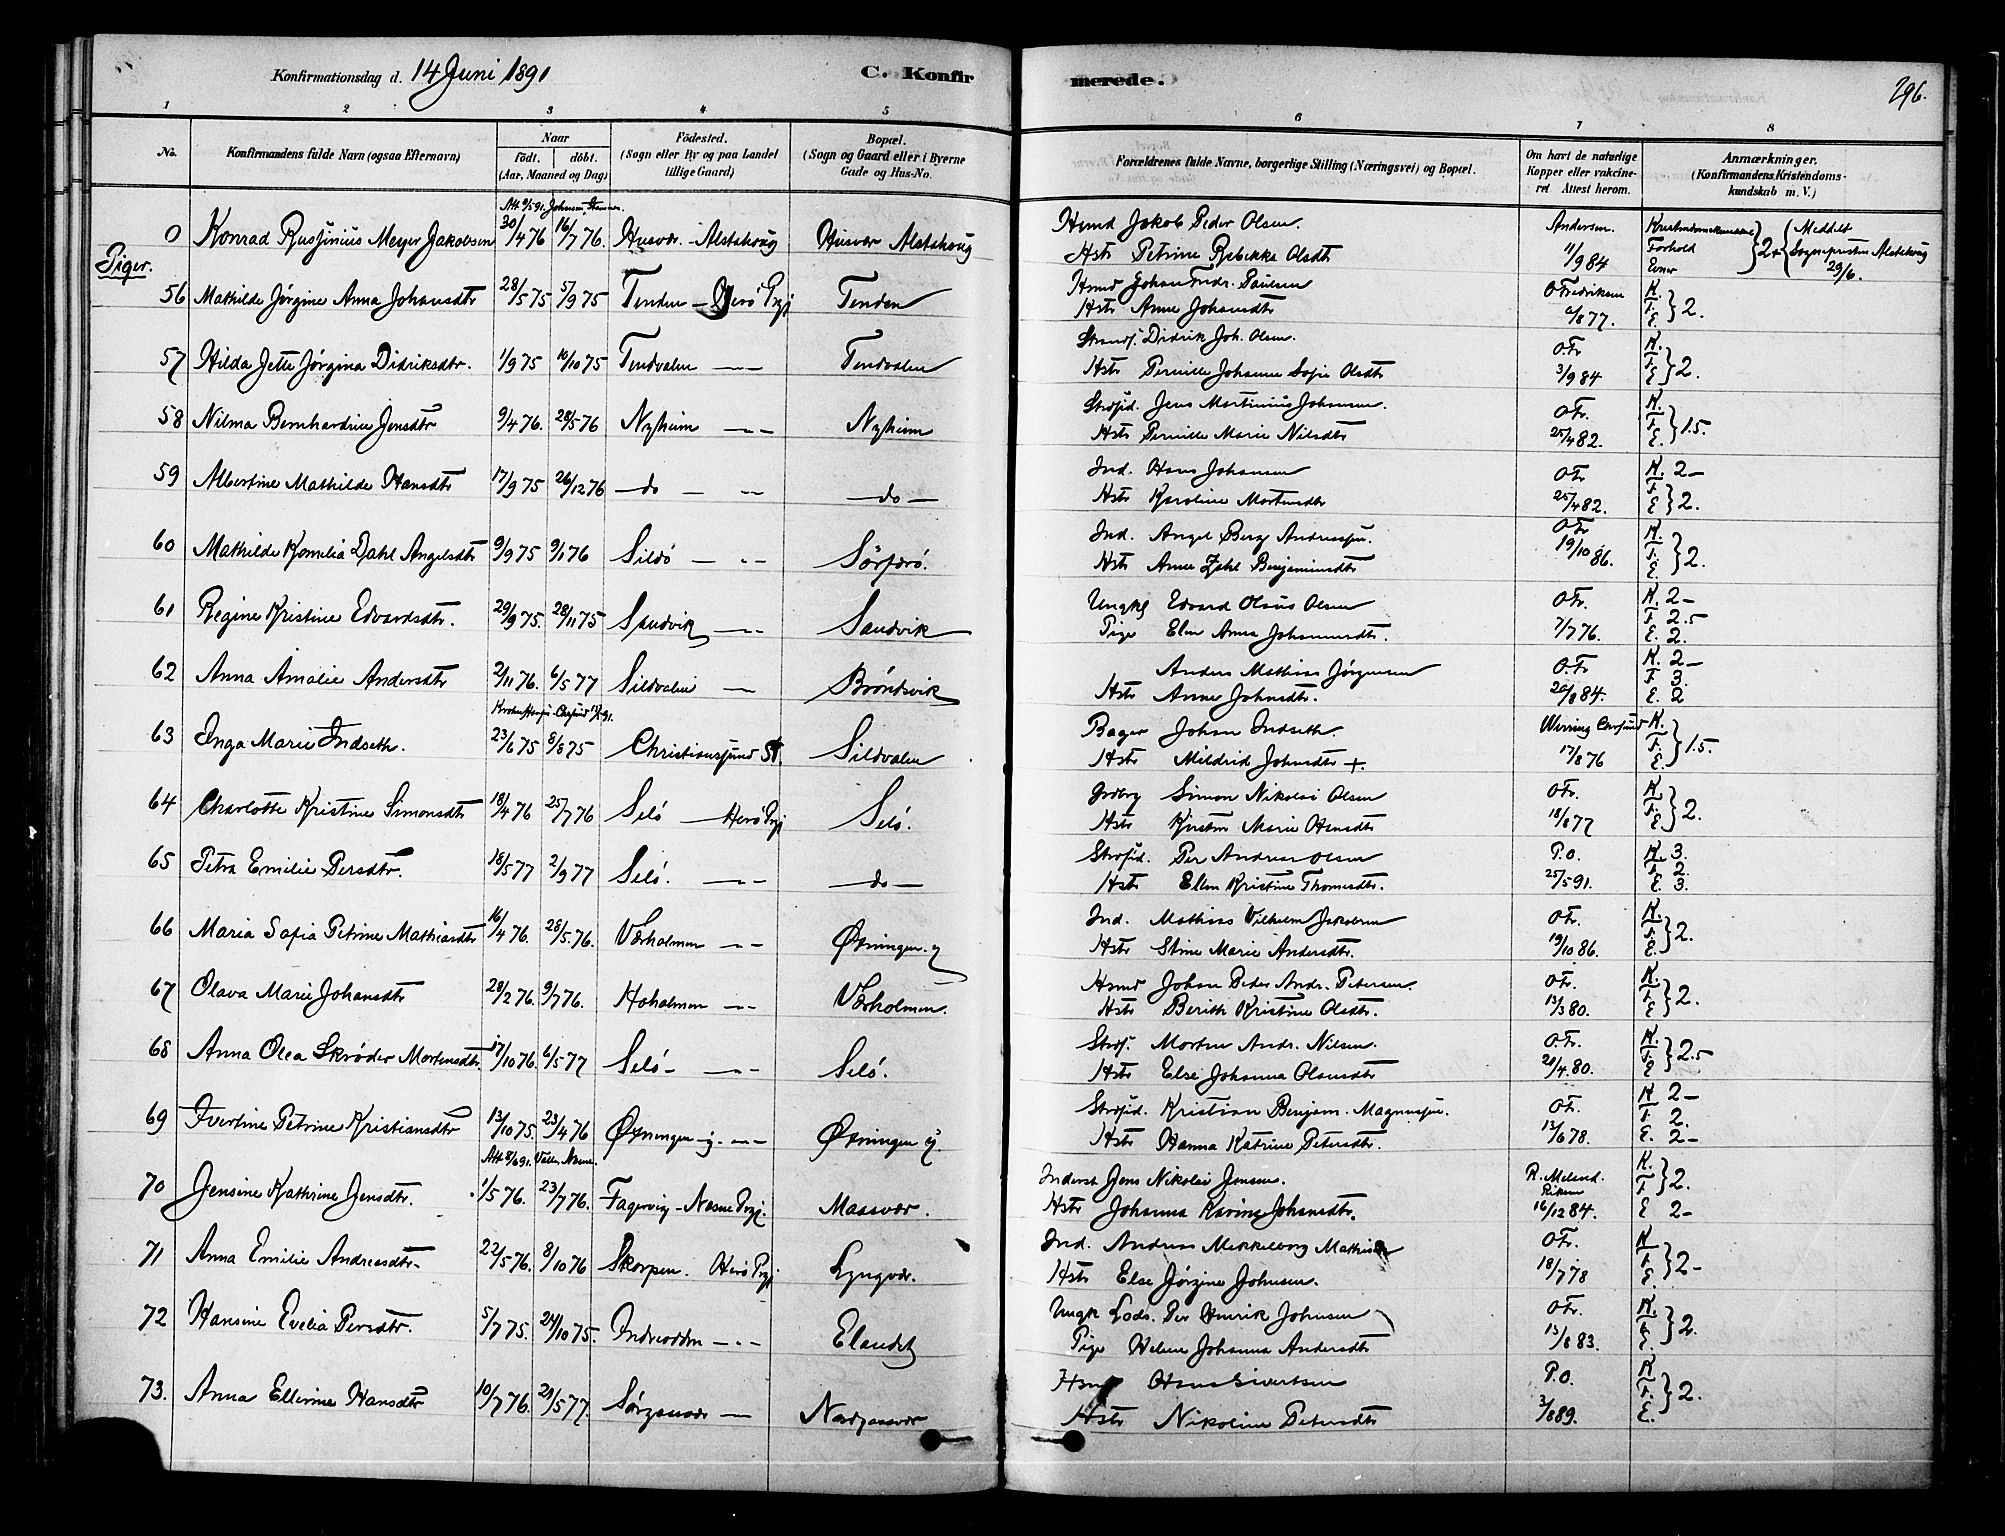 Konfirmationsdag d. 14 Juni 1891
C. Konfirmerede.
296.
1 2 3 4 5 6 7 8
No.
Konfirmandens fulde Navn (ogsaa Efternavn)
Naar
födt. döbt.
(Aar, Maaned og Dag)
Födested.
(Sogn eller By og paa Landet
tillige Gaard)
Bopæl.
(Sogn og Gaard eller i Byerne
Gade og Hus-No.
Forældrenes fulde Navne, borgerlige Stilling (Næringsvei) og Bopæl.
Om havt de naturlige
Kopper eller vakcine-
ret. Attest herom.
Anmærkninger.
(Konfirmandens Kristendoms-
kundskab m. V.)
0 Konrad Meyer Jakobsen 30/4 76 16/7 76. Husvær - Alstahoug Husvær Alstahoug
Hsmd Jakob Peder Olsen. Andersen. Forhold 2+ Meddelt
Hstr Petrine Rebekka Olsdtr 11/9 84 Evner Sognepresten Alstahoug 29/6.
Piger.
56 Mathilde Jørgine Anna Johansdtr 28/5 75 5/9 75 Tenden - Herö Prgj Tenden
Hsmd Johan Fredr. Paulsen O Fredriksen K. F. E. } 2.
Hstr Anne Johansdtr /8 77.
57 Hilda Jette Jørgina Didriksdtr. 1/9 75 10/10 75 Tendvalen -"- Tendvalen
Strandsj. Didrik Joh. Olsen. O.Fr K. F. E } 2.
Hstr Pernille Johanna Sofie Olsdtr 3/9 84
58 Nilma Bernhardine Jensdtr 9/4 76. 28/5 76 Nyheim -"- Nyheim
Strøsid. Jens Martinius Johansen. O Fr. K. F. E. } 1.5.
Hstr Pernille Marie Nilsdtr 25/4 82.
59 Albertine Mathilde Hansdtr 17/9 75 26/12 76 -do- -"- -do-
Ind. Hans Johansen O Fr K 2- F E } 2.
Hstr Karoline Mortensdtr 25/4 82.
60 Mathilde Kornelia Dahl Angelsdtr 9/9 75 9/1 76 Sildö -"- Sörfærö.
Ind. Angel Berg Andreassen. O Fr K. F. E. } 2.
Hstr Anne Zahl Benjaminsdtr 19/10 86.
61 Regine Kristine Edvardsdtr. 29/9 75. 28/11 75 Sandvik -"- Sandvik
Ungkl Edvard Olaus Olsen O Fr. K. 2- F 2.5 E. 2.
Pige Elen Anna Johannesdtr. 7/7 76.
62 Anna Amalie Andersdtr 2/11 76. 6/5 77 Sildvalen -"- Bröndsvik
Anders Mathias Jörgensen O. Fr K. 2- F 3. E. 2
Hstr Anne Johnsdtr. 20/8 84.
63 Inga Marie Indseth. 23/6 75 8/8 75 Christiansund St. Sildvalen
Bager Johan Indseth. Werring Chrsund K. F. E. } 1.5.
Hstr Mildrid Johnsdtr +. 17/8 76
64 Charlotte Kristine Simonsdtr 18/4 76 25/7 76 Selö - Herö Prgj Selö.
Simon Nikolai Olsen O Fr. K F. E. } 2.
Hstr Kirsten Marie Hansdtr 18/6 77
65 Petra Emilie Persdtr. 18/5 77 2/9 77 Selö. -"- -do-
Strøsid. Per Andreas Olsen P.O. K. 3. F. 2. E. 3.
Hstr Ellen Kristine Thomesdtr. 25/5 91.
66 Maria Sofia Petrine Mathiasdtr 16/4 76. 28/5. 76. Værholmen -"- Øxningen. y
Ind. Mathias Vilhelm Jakobsen O Fr. K. F. E } 2.
Hstr Stine Marie Andersdtr. 19/10 86.
67 Olava Marie Johansdtr 28/2 76. 9/7 76. Hoholmen -"- Værholmen.
Hsmd Johan Peder Andr. Petersen. O Fr. K. F. E } 2.
Hstr Berith Kristine Olsdtr. 13/3 80.
68 Anna Olea Skrøder Mortensdtr. 17/10 76. 6/5 77 Selö - -"- Selö.
Strøs. Morten Andr. Nilsen. O.Fr. K. F. E } 2.5
Hstr Else Johanna Olausdtr 21/4. 80.
69 Ivertine Petrine Kristiansdtr 13/10 75. 23/4 76 Øxningen y. -"- Øxningen y.
Strøsid. Kristian Benjam. Magnussen. O Fr. K 2- F. 2. E. 2-
Hstr Hanna Katrine Petersdtr. 13/6 78.
70 Jensine Kathrine Jensdtr. 1/5 76. 23/7 76. Fagervig - Næsne Prgj. Maasvær.
Inderst Jens Nikolai Jensen. R. Meland. K. F. } 2. E 2-
Hstr Johanna Karine Johansdtr. 16/12 84.
71 Anna Emilie Andreasdtr. 22/5 76. 8/10 76 Skorpen. Herö Prgj Lyngvær.
Ind. Andreas Mekkelborg Mathisen O Fr. K F. E. } 2-
Hstr Else Jørgine Johnsen. 18/7 78
72 Hansine Evelia Persdtr. 5/7 75. 24/10 75. Indreodden -"- Elandet
Ungk Lods. Per Henrik Johnsen O Fr. K. F. E. } 2.
Pige Helene Johanna Andersdtr 13/8 83.
73. Anna Ellerine Hansdtr 10/7 76. 21/5 77. Sørgaasvær - Nordgaasvær
Hans Sivertsen P.O. K F. E. } 2.
Hstr Nikoline Petersdtr 3/8 89.